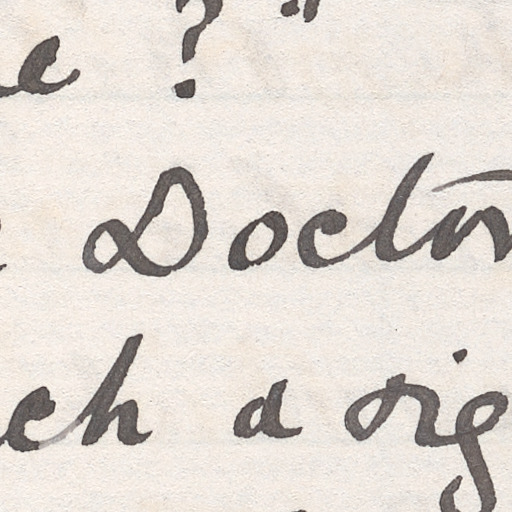 e ?"
Doctor
ch a sig